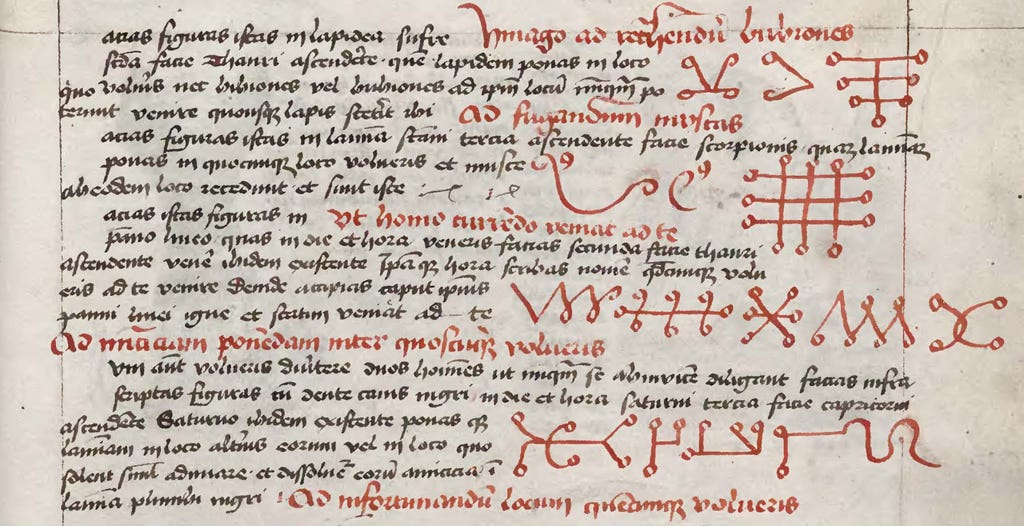 atias figuras istas in lapidea sufre Ymago ad rethendū bubiones
scda facie Thauri ascendēte que lapidem ponas in loco
quo volueris nec bibiones vel bubiones ad ipm locū nūqm po
terunt venire quousq lapis steterit ibi Ad fugandum muscas
atias figuras istas in lamīa stāni tercia ascendente facie scorpionis quaz lamīaz
ponas in quocumq loco volueris et musce
ab eodem loco recedunt et sunt iste
atias istas figuras in Vt homo currēdo veniat ad te
pāno lineo quas in die et hora veneris facias secunda facie thauri
ascendente venē ibidem existente Ipāq hora scribas nomē qdcumq volu
eris ad te venire Deinde accipias caput ipius
panni linei igne et statim veniat ad te
Ad inīciciam ponēdam inter quoscūq volueris
Um aut volueris diuītere duos homīes ut nūqm se abinuicē diligant facias infra
scriptas figuras cū dente canis nigri in die et hora saturni tercia facie capricorni
ascendēte Saturno ibidem existente ponas q
lamīam in loco altius eorum vel in loco quo
solent siml adiuuare et dissoluet eorū amicicia ī
lamia plumbi nigri Ad infortunandū locum quecumque volueris